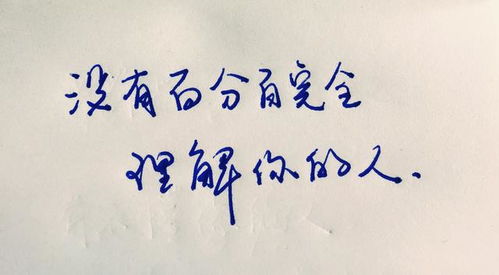 没有百分百完全
理解你的人.